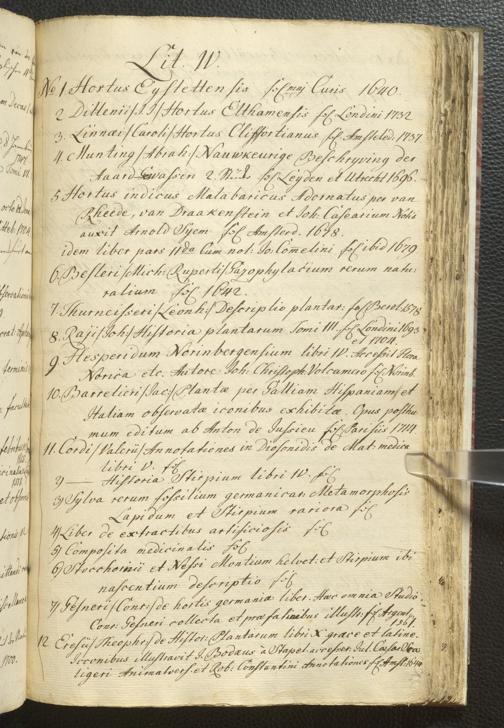 Lit. W.
No 1 Hortus Eystettensis fol maj Curis 1640.
2 Dillenii /J. J/ Hortus Elthamensis fol Londini 1732
3. Linnaei /Caroli/ Hortus Cliffortianus fol Amsteled. 1737
4. Munting /Abrah:/ Nauwkeurige Beschryving der
Aaard Gewassen 2. fol Leyden et Utrecht 1696.
5 Hortus indicus Malabaricus Adornatus per van
Rheede, van Draakenstein et Joh: Casearium Notis
auxit Arnold Syem fol Amsterd. 1678.
idem liber pars IIda Cum not: Jo: Comelini fol ibid 1679
6. Besleri /Mich: Ruperti/ Gazophylacium rerum natu-
ralium fol 1642.
7. Thurneisseri /Leonh:/ Descriptio plantar: fol Berol 1578
8. Raji /Joh:/ Historia plantarum Tomi III. fol Londini 1693
et 1704.
9 Hesperidum Norinbergensium libri IV. Accessit Flora
Norica etc. Autore Joh: Christoph. Volcamero fol Norimb.
10. Barrelieri /Jac:/ Plantæ per Galliam Hispaniam et
Italiam observatæ iconibus exhibitæ. Opus posthu-
mum editum ab Anton de Jussieu fol Parisiis 1714
11. Cordi /Valerii/ Annotationes in Diosoridis de Mat: medica
libri V. fol
2) — Historia Stirpium libri IV. fol
3) Sylva rerum fossilium germanicar: Metamorphosis
Lapidum et Stirpium rariora fol
4) Liber de extractibus artificiosis fol
5) Composita medicinalis fol
6) Stocchornii et Nessi Montium helvet: et Stirpium ibi
nascentium descriptio fol
7) Gesneri /Conr:/ de hortis germaniæ liber. Hæc omnia Studio
Conr: Gesneri collecta et præfationibus illustr: fol Argent.
1561.
12 Eresii /Theophr:/ de Histor: Plantarum libri X. græce et latine.
Iconibus illustravit J. Bodæus à Stapel accesser: Jul. Cæsar Sca-
ligeri Animadvers: et Rob: Constantini Annotationes fol Amst. 1644